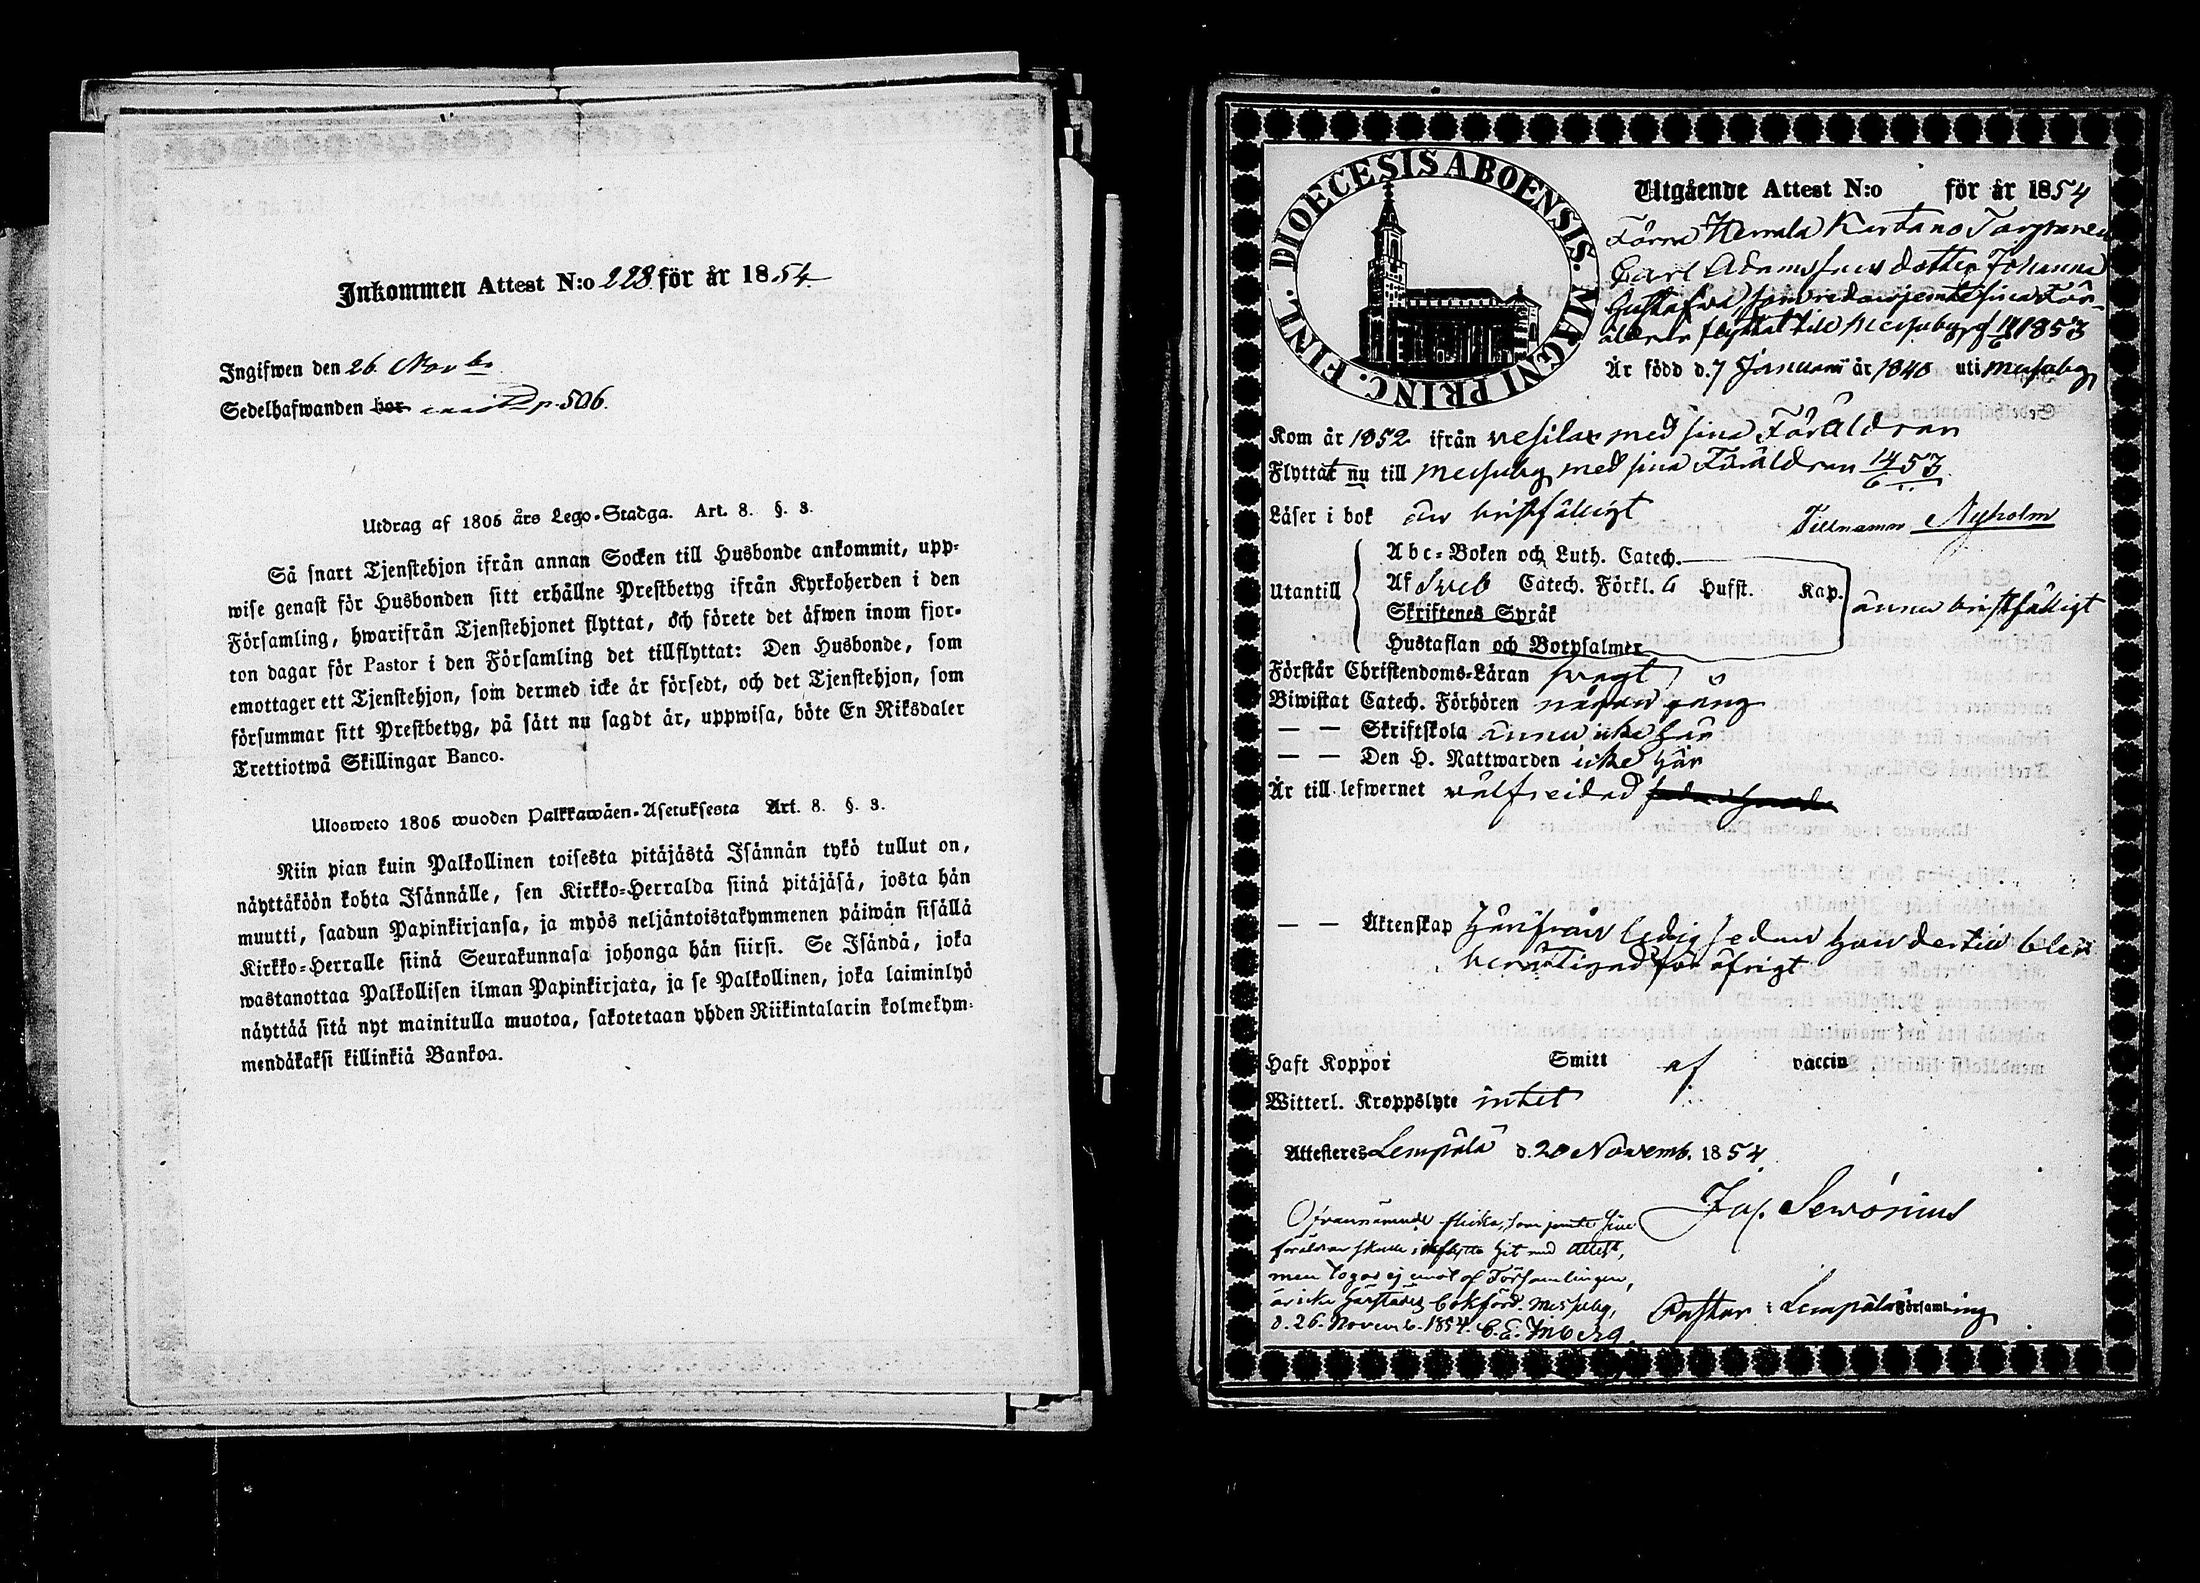 Inkommen Attest N:o 228 för år 1854
Ingifwen den 26 Novbr
Sedelhafwanden bor p. 506.
Utdrag af 1805 års Lego-Stadga. Art. 8. §. 3.
Så snart Tjenstehjon ifrån annan Socken till Husbonde ankommit, upp-
wise genast för Husbonden sitt erhållne Prestbetyg ifrån Kyrkoherden i den
Församling, hwarifrån Tjenstehjonet flyttat, och förete det äfwen inom fjor-
ton dagar för Pastor i den Församling det tillflyttat: Den Husbonde, som
emottager ett Tjenstehjon, som dermed icke är försedt, och det Tjenstehjon, som
försummar sitt Prestbetyg, på sätt nu sagdt är, uppwisa, böte En Riksdaler
Trettiotwå Skillingar Banco.
Ulosweto 1805 wuoden Palkkawäen-Asetuksesta Art. 8. §. 3.
Niin pian kuin Palkollinen toisesta pitäjästä Isännän tykö tullut on,
näyttäköön kohta Isännälle, sen Kirkko-Herralda siinä pitäjäsä, josta hän
muutti, saadun Papinkirjansa, ja myös neljäntoistakymmenen päiwän sisällä
Kirkko-Herralle siinä Seurakunnasa johonga hän siirsi. Se Isändä, joka
wastanottaa Palkollisen ilman Papinkirjata, ja se Palkollinen, joka laiminlyö
näyttää sitä nyt mainitulla muotoa, sakotetaan yhden Riikintalarin kolmekym-
mendäkaksi killinkiä Bankoa.
DIOECESIS ABOENSIS. MAGNI PRINC. FINL.
Utgående Attest N:o för år 1854
Förra Herrala Kartano Torparen
Carl Adamssons dotter Johanna
Gustafva som redan jemte sina För-
äldrar flyttat till Messuby d 14/6 1853
Är född d. 7 Januari år 1840 uti Messuby
Kom år 1852 ifrån Vesilax med sina Föräldrar
Flyttat nu till Messuby med sina Föräldrar 14/6 53
Läser i bok än bristfälligt
Tillnamn Nyholm
Utantill
Abc-Boken och Luth. Catech.
Af Sveb Catech. Förkl. 6 Hufst. Kap.
Skriftenes Språk
Hustaflan och Botpsalmer
ännu bristfälligt
Förstår Christendoms-Läran svagt
Biwistat Catech. Förhören någon gång
— — Skriftskola ännu icke här
— — Den H. Nattwarden icke här
Är till lefwernet välfreidad
— — Äktenskap Härifrån ledig sedan hon dertill blir
berättigad för öfrigt
Haft Koppor Smitt af vaccin
Witterl. Kroppslyte intet
Attesteres Lempälä d. 20 Novemb. 1854.
Jos. Sevónius
Pastor i Lempälä Församling
Ofvannämnde flicka, som jemte sine
föräldrar skulle inflytta hit med attest,
men togos ej emot af Församlingen,
är icke härstädes bokförd. Messuby,
d. 26. Novemb. 1854. C. E. Inberg.